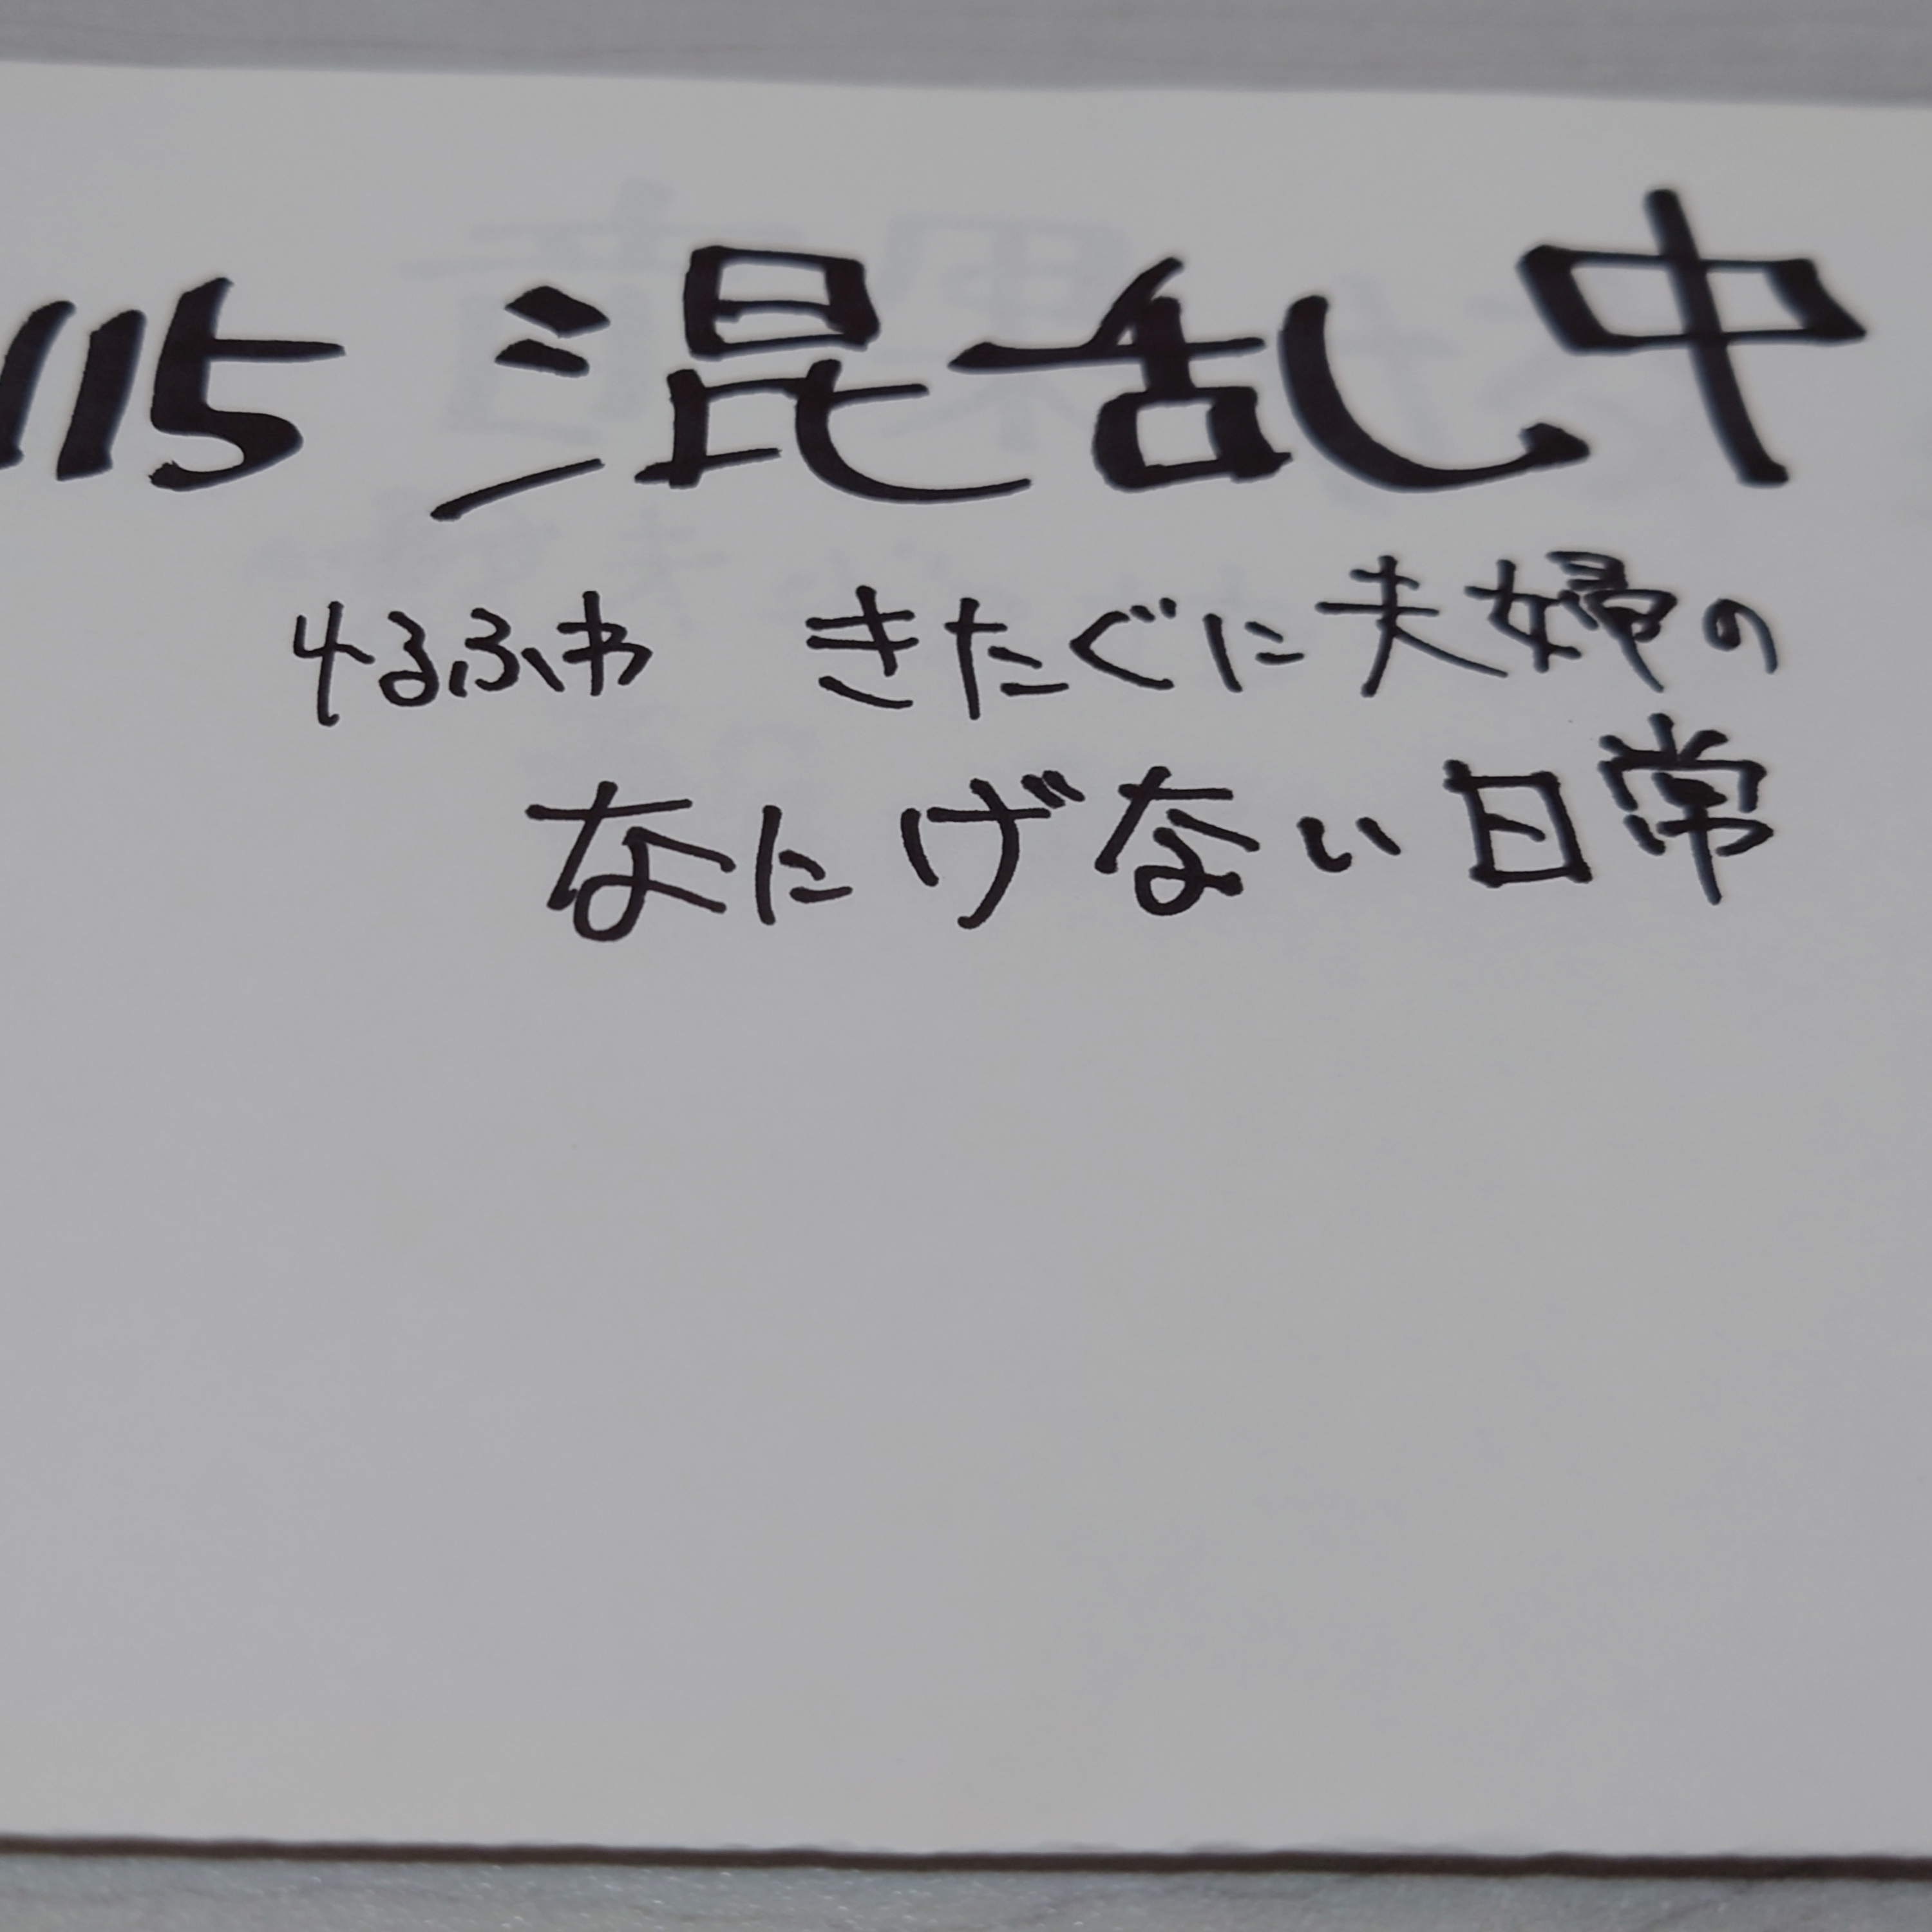 115 混乱中
ゆるふわ きたぐに夫婦の
なにげない日常